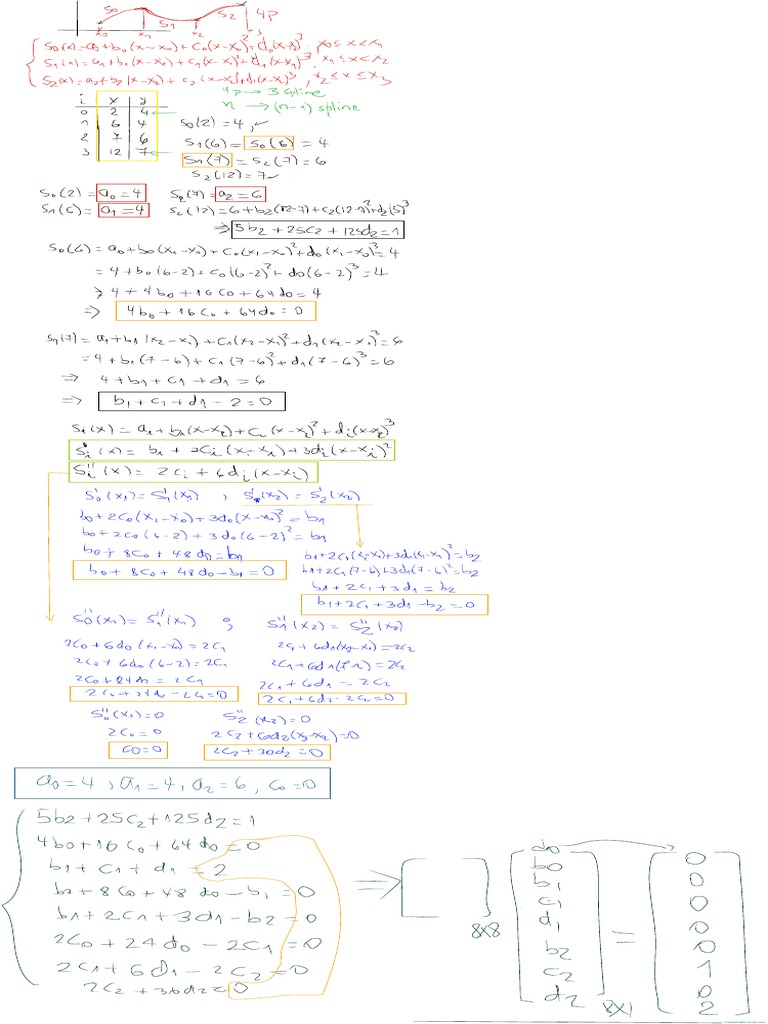 S0 S1 S2 4p
x0 x1 x2
S0(x)=a0+b0(x-x0)+C0(x-x0)²+d0(x-x0)³, x0≤x<x1
S1(x)=a1+b1(x-x1)+c1(x-x1)²+d1(x-x1)³, x1≤x<x2
S2(x)=a2+b2(x-x2)+c2(x-x2)²+d2(x-x2)³, x2≤x≤x3
i x y
4p → 3 spline
n → (n-1) spline
0 2 4
1 6 4
2 7 6
3 12 7
S0(2)=4, ✓
S1(6)=S0(6)=4
S1(7)=S2(7)=6
S2(12)=7 ✓
S0(2)=a0=4 S2(7)=a2=6
S1(6)=a1=4 S2(12)=6+b2(12-7)+c2(12-7)²+d2(5)³
⇒ 5b2+25c2+125d2=1
S0(6)=a0+b0(x1-x0)+C0(x1-x0)²+d0(x1-x0)³=4
=4+b0(6-2)+c0(6-2)²+d0(6-2)³=4
⇒ 4+4b0+16C0+64d0=4
⇒ 4b0+16C0+64d0=0
S1(7)=a1+b1(x2-x1)+C1(x2-x1)²+d1(x2-x1)³=6
=4+b1(7-6)+C1(7-6)²+d1(7-6)³=6
⇒ 4+b1+C1+d1=6
⇒ b1+c1+d1-2=0
Si(x)=ai+bi(x-xi)+Ci(x-xi)²+di(x-xi)³
Si'(x)=bi+2Ci(x-xi)+3di(x-xi)²
Si''(x)=2Ci+6di(x-xi)
S0'(x1)=S1'(x1) , S1'(x2)=S2'(x2)
b0+2C0(x1-x0)+3d0(x-x0)²=b1
b0+2C0(6-2)+3d0(6-2)²=b1
b0+8C0+48d0=b1
b0+8C0+48d0-b1=0
b1+2C1(x2-x1)+3d1(x2-x1)²=b2
b1+2C1(7-6)+3d1(7-6)²=b2
b1+2C1+3d1=b2
b1+2C1+3d1-b2=0
S0''(x1)=S1''(x1) ; S1''(x2)=S2''(x2)
2C0+6d0(x1-x0)=2C1 2C1+6d1(x2-x1)=2C2
2C0+6d0(6-2)=2C1
2C0+24d0=2C1 2C1+6d1=2C2
2C0+24d0-2C1=0 2C1+6d2-2C2=0
S0''(x0)=0 S2''(x3)=0
2C0=0 2C2+6d2(x3-x2)=0
C0=0 2C2+30d2=0
a0=4, a1=4, a2=6, C0=0
5b2+25C2+125d2=1
4b0+16C0+64d0=0
b1+C1+d1=2
b0+8C0+48d0-b1=0
b1+2C1+3d1-b2=0
2C0+24d0-2C1=0
2C1+6d1-2C2=0
2C2+30d2=0
⇒ [ ] 8x8
d0
b0
b1
c1
d1
b2
c2
d2
8x1
=
0
0
0
0
0
1
0
2